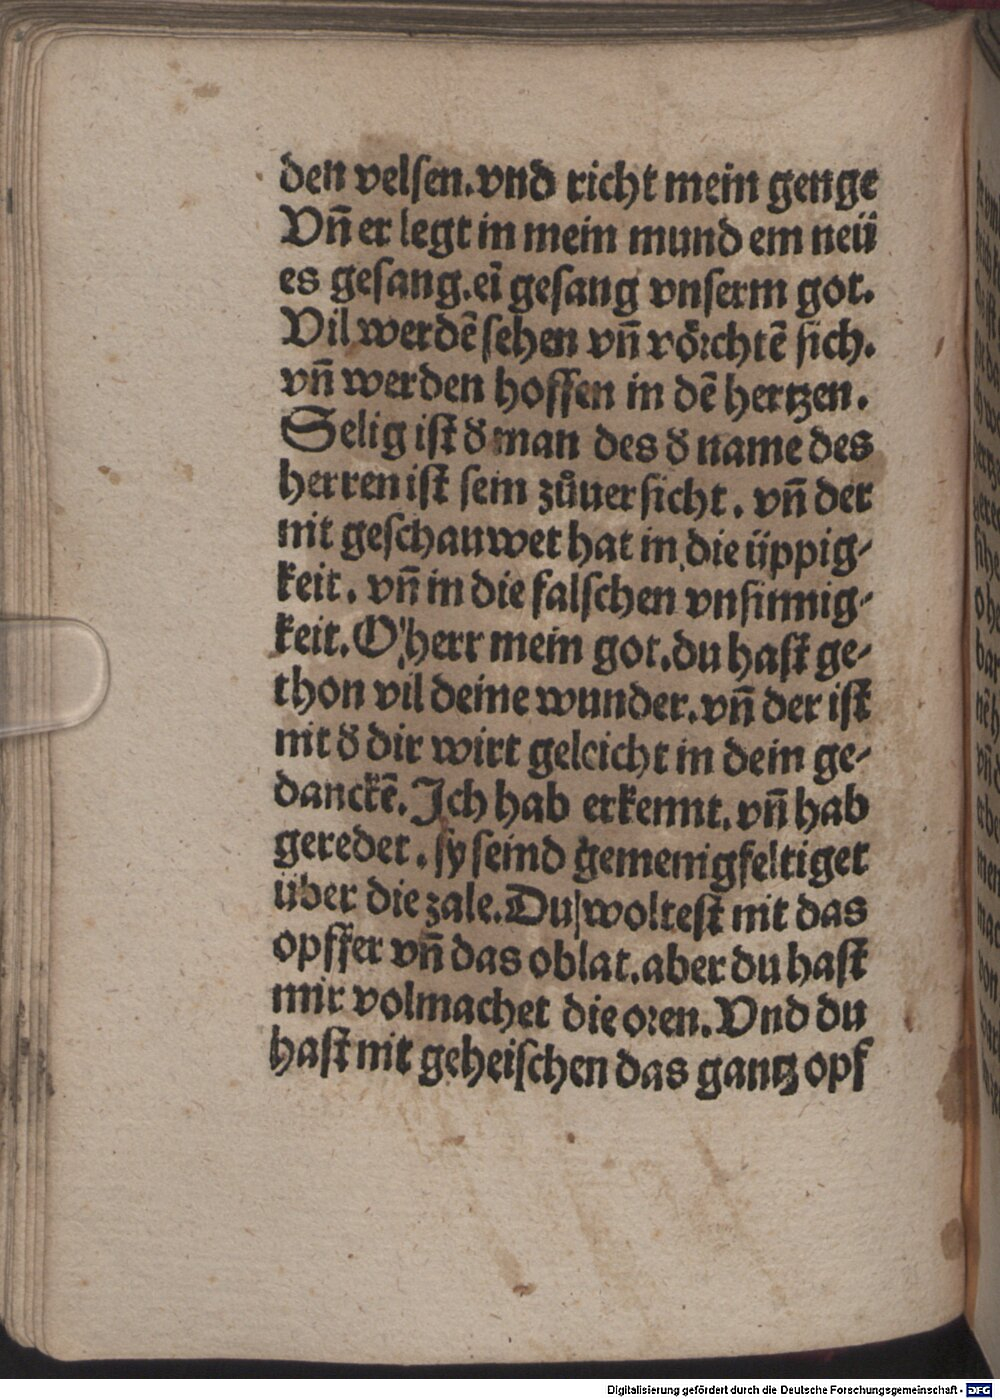 den velsen. vnd richt mein genge
Vñ er legt in mein mund ein neü
es gesang. eī gesang vnserm got.
Vil werdē sehen vñ vörchtē sich.
vñ werden hoffen in dē hertzen.
Selig ist ď man des ď name des
herren ist sein zůuersicht. vñ der
nit geschauwet hat in die üppig⸗
keit. vñ in die falschen vnsinnig⸗
keit. O herr mein got. du hast ge⸗
thon vil deine wunder. vñ der ist
nit ď dir wirt geleicht in dein ge⸗
danckē. Ich hab erkennt. vñ hab
geredet. sy seind gemenigfeltiget
über die zale. Du woltest nit das
opffer vñ das oblat. aber du hast
mir volmachet die oren. Vnd du
hast nit geheischen das gantz opf
Digitalisierung gefördert durch die Deutsche Forschungsgemeinschaft - DFG